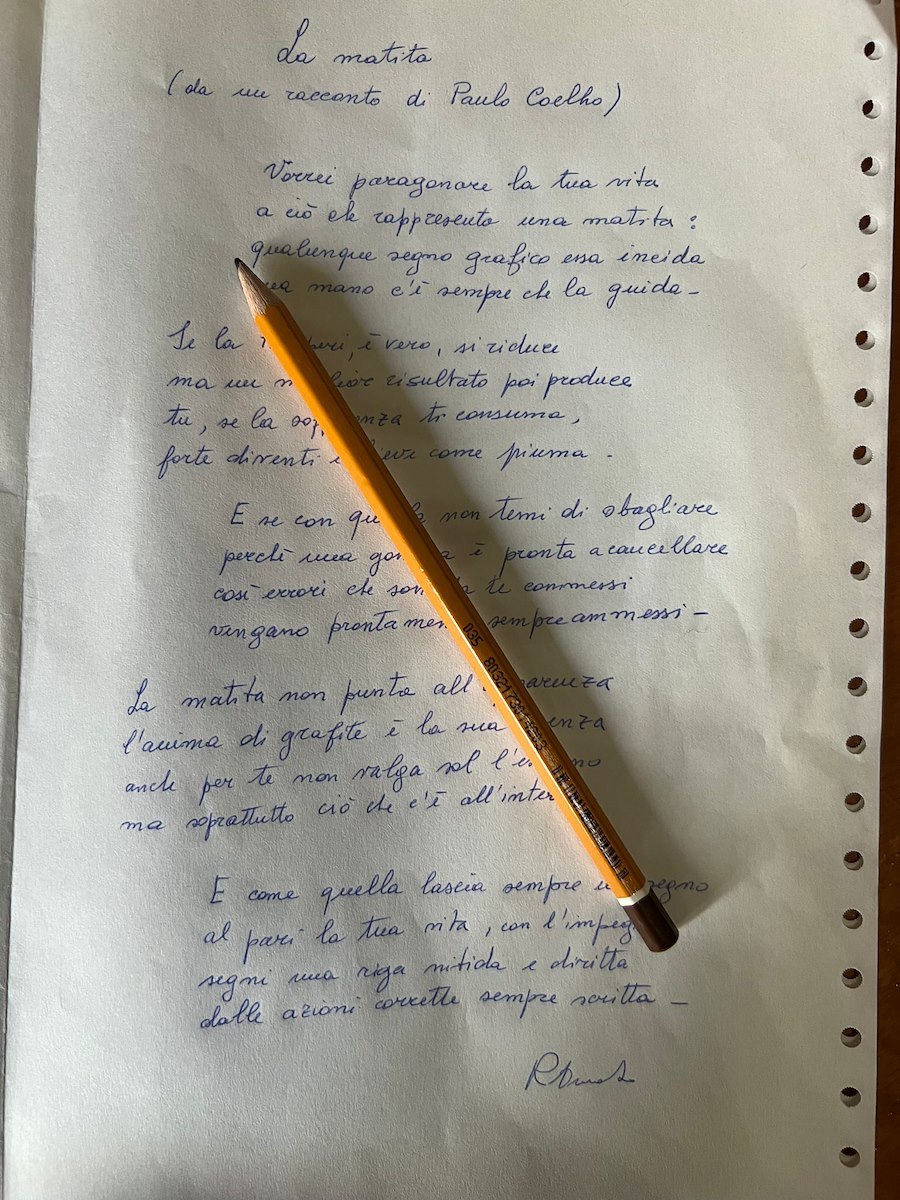 La matita
(da un racconto di Paulo Coelho)
Vorrei paragonare la tua vita
a ciò che rappresenta una matita:
qualunque segno grafico essa incida
mano c'è sempre che la guida -
Se la è vero, si riduce
ma un risultato poi produce
tu, se la ti consuma,
forte diventi come piuma -
E se con non temi di sbagliare
perchè una è pronta a cancellare
così errori che te commessi
vengano sempre ammessi -
La matita non punta
l'anima di grafite è la sua
anche per te non valga sol
ma soprattutto ciò che c'è
E come quella lascia sempre
al pari la tua vita, con
segni una riga nitida e diritta
dalle azioni corrette sempre scritta -
035